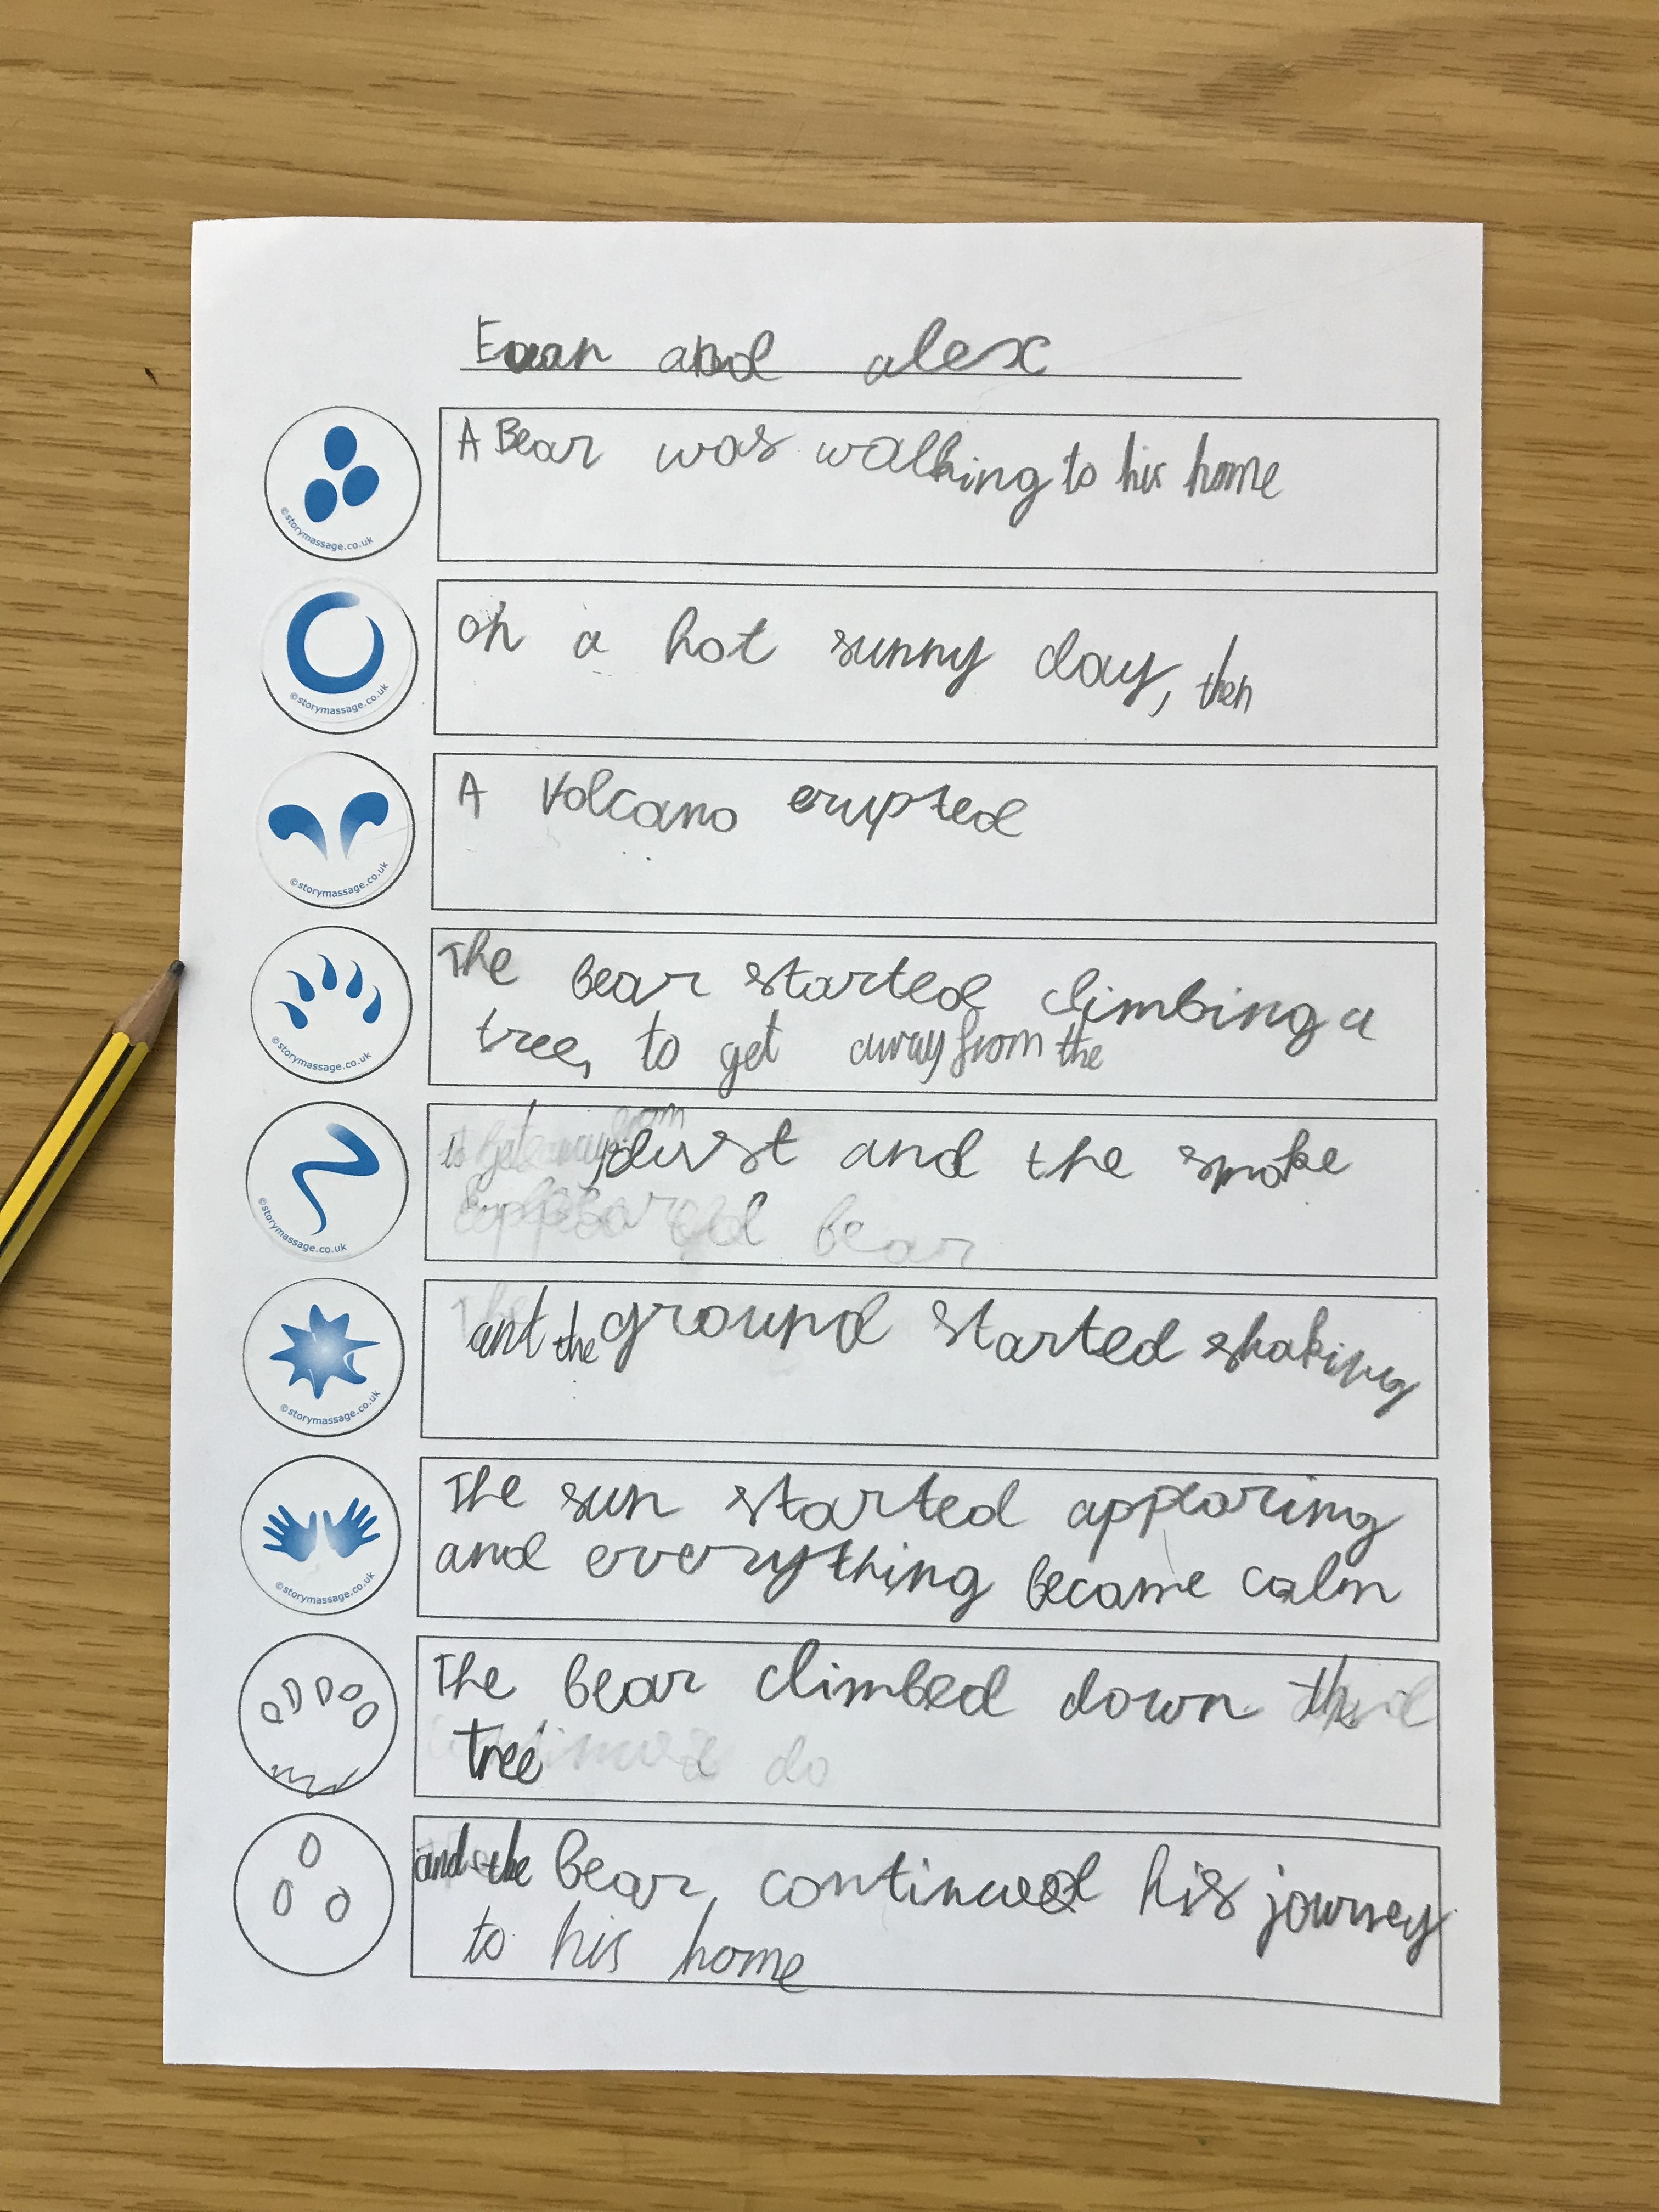 Euan and alex
©storymassage.co.uk
A Bear was walking to his home
©storymassage.co.uk
on a hot sunny day, then
©storymassage.co.uk
A Volcano erupted
©storymassage.co.uk
The bear started climbing a
tree, to get away from the
©storymassage.co.uk
dust and the smoke
bear
©storymassage.co.uk
ant the ground started shaking
©storymassage.co.uk
The sun started appearing
and everything became calm
The bear climbed down the
tree
and the Bear, continued his journey
to his home